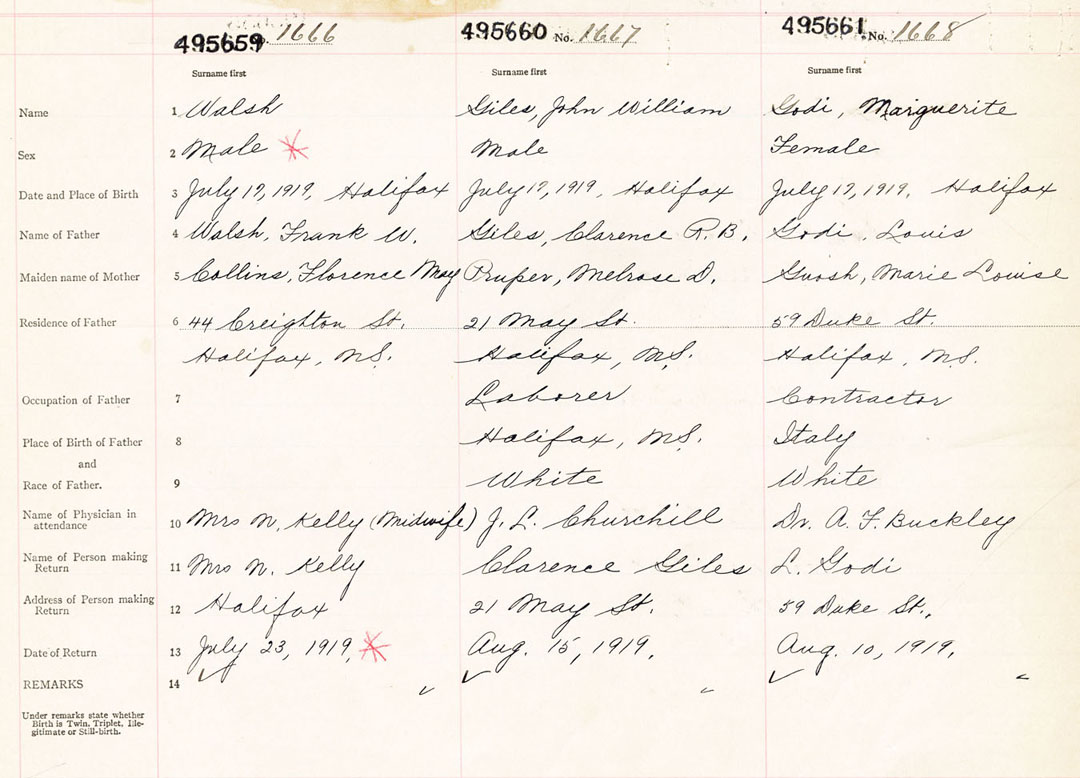 495659 No. 1666 495660 No. 1667 495661 No. 1668
Surname first Surname first Surname first
Name 1 Walsh Giles, John William Godi, Marguerite
Sex 2 Male Male Female
Date and Place of Birth 3 July 17, 1919, Halifax July 17, 1919, Halifax July 17, 1919, Halifax
Name of Father 4 Walsh, Frank W. Giles, Clarence R. B. Godi, Louis
Maiden name of Mother 5 Collins, Florence May Melrose D. Marie Louise
Residence of Father 6 44 Creighton St. 21 May St. 59 Duke St.
Halifax, N.S. Halifax, N.S. Halifax, N.S.
Occupation of Father 7 Laborer Contractor
Place of Birth of Father 8 Halifax, N.S. Italy
and
Race of Father. 9 White White
Name of Physician in
attendance 10 Mrs N. Kelly (Midwife) J. L. Churchill Dr. A. F. Buckley
Name of Person making
Return 11 Mrs N. Kelly Clarence Giles L. Godi
Address of Person making
Return 12 Halifax 21 May St. 59 Duke St.,
Date of Return 13 July 23, 1919, Aug. 15, 1919, Aug. 10, 1919,
REMARKS 14
Under remarks state whether
Birth is Twin, Triplet, Ille-
gitimate or Still-birth.